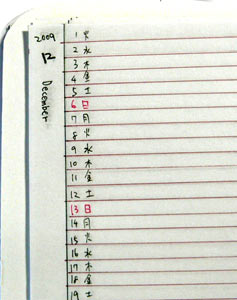 2009
12
December
1 火
2 水
3 木
4 金
5 土
6 日
7 月
8 火
9 水
10 木
11 金
12 土
13 日
14 月
15 火
16 水
17 木
18 金
19 土